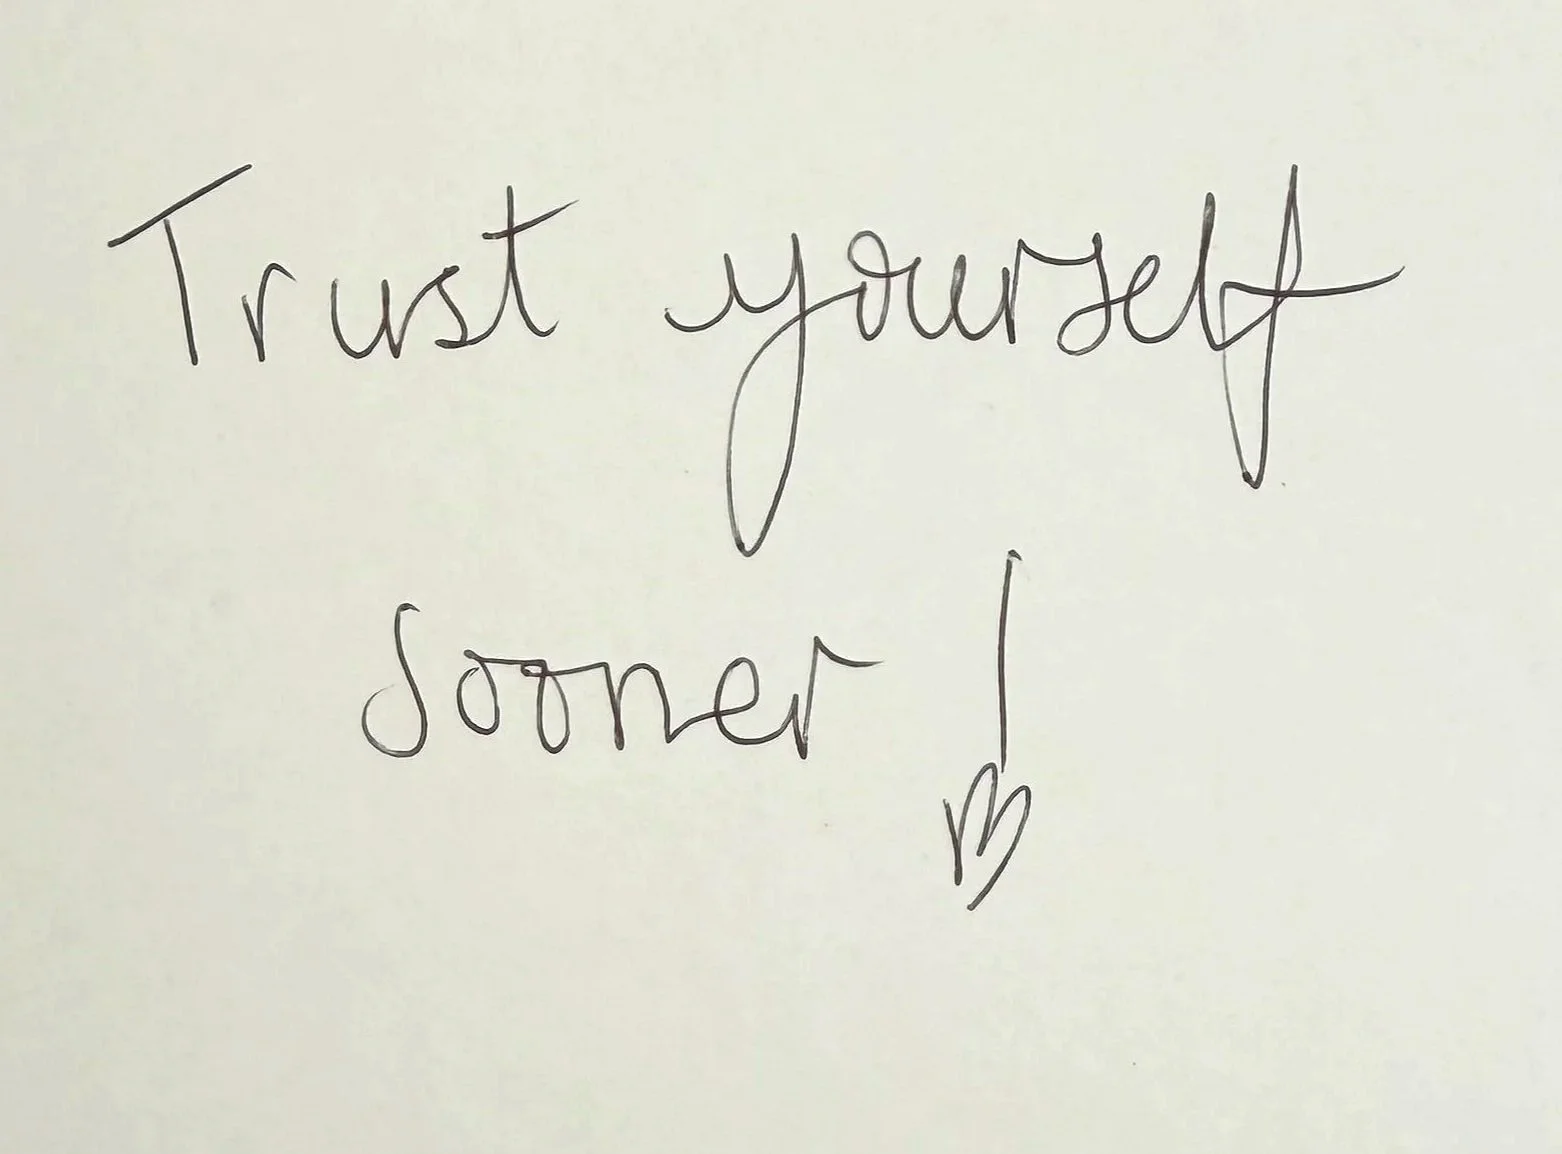 Trust yourself
sooner!